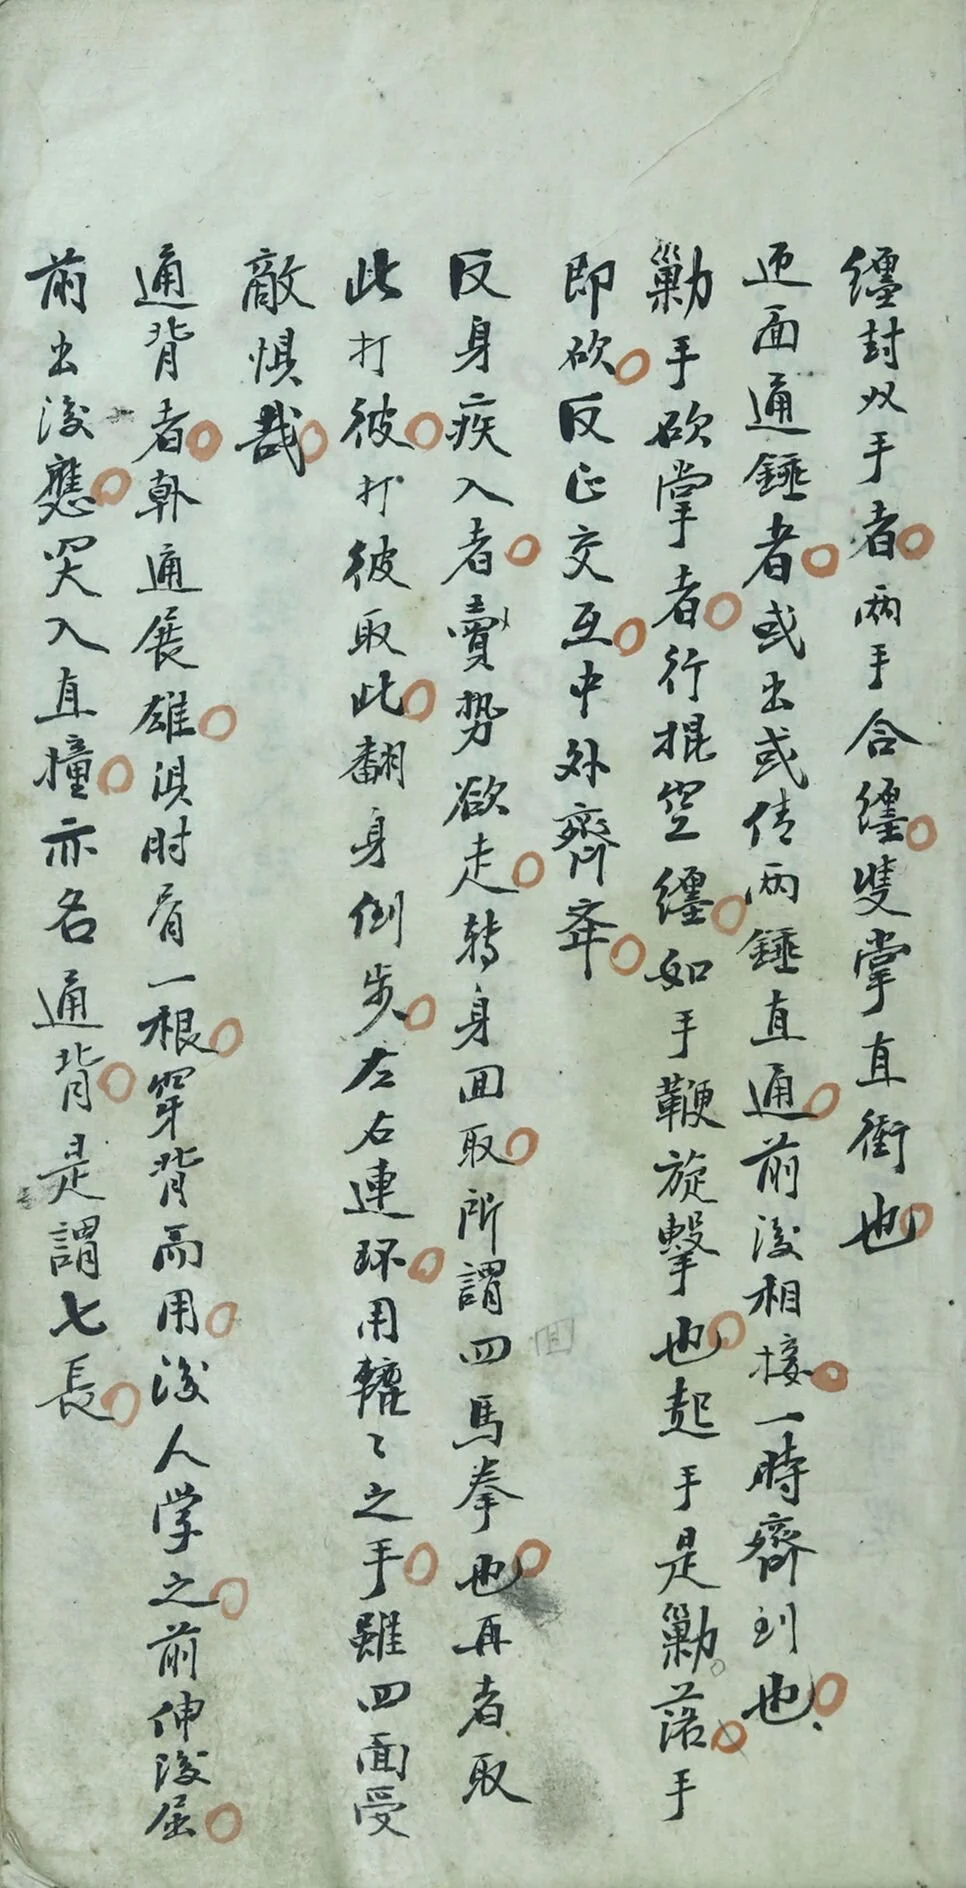 纏封双手者○两手合纏○雙掌直衝也○
迎面通錘者○或出或倩两錘直通○前後相接○一時齊到也○
勦手砍掌者○行棍空纏○如手鞭旋擊也○起手是勦○落○手
即砍○反正交互○中外齊奔○
反身疾入者○賣势欲走○轉身回取○所謂四馬拳也○再者取
此打彼○打彼取此○翻身倒步○左右連环○用轆々之手○雖四面受
敵惧哉○
通背者○軋通展雄○湏时肩一根○穿背而用○後人学之○前伸後屈○
前出後應○罙入直撞○亦名通背○是謂七長○